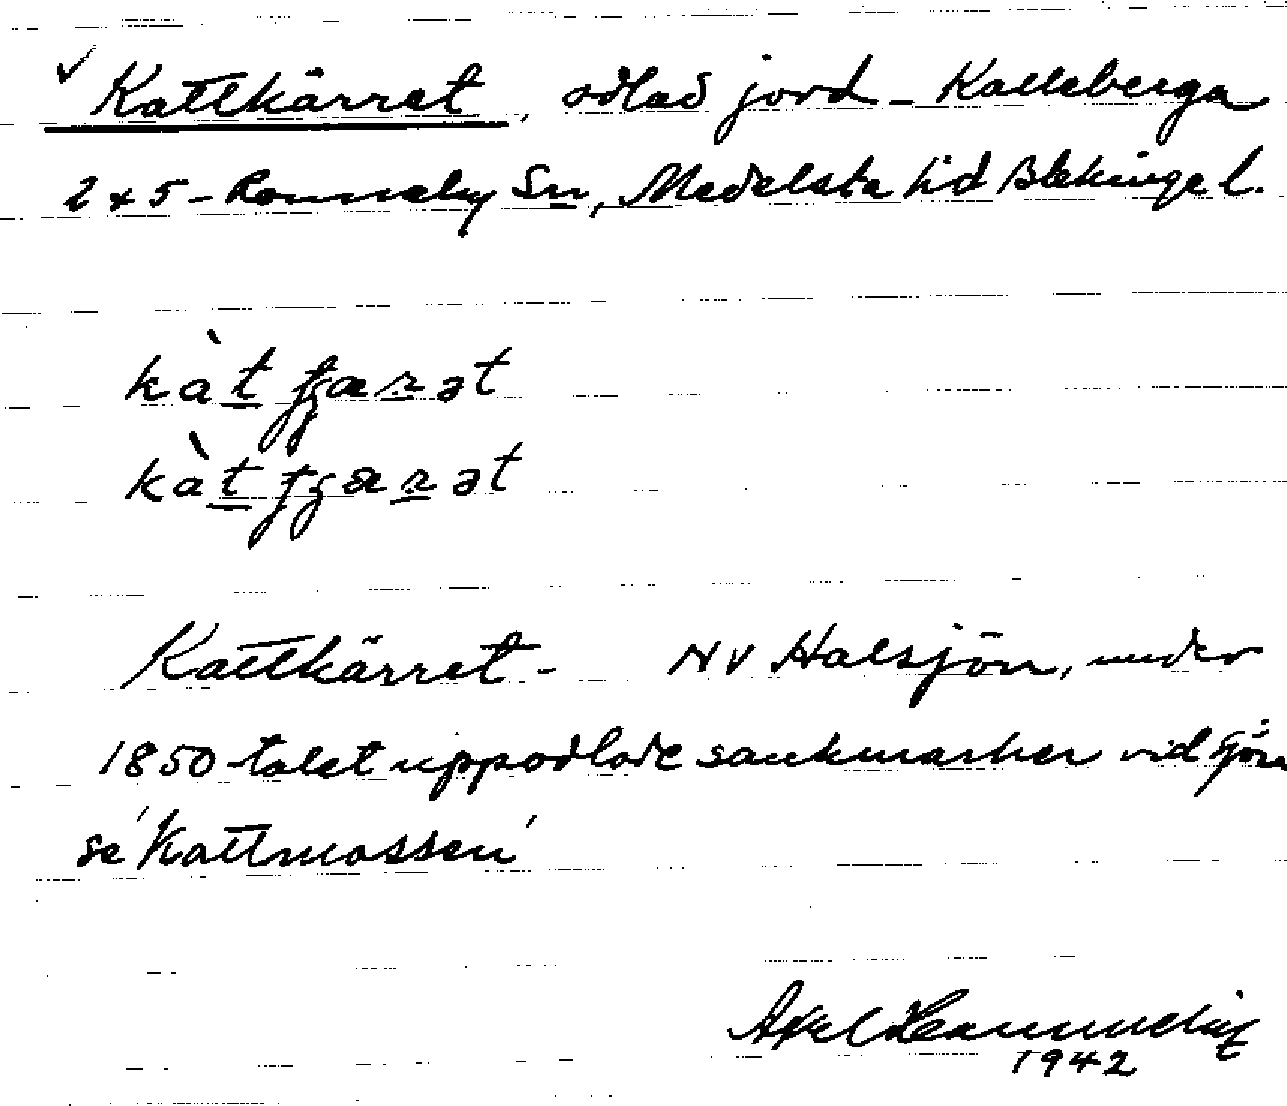 ✓ Kattkärret, odlad jord - Kalleberga
2 & 5 - Ronneby Sn, Medelsta hd Blekinge l.
kàt ʃʒærət
kàt ʃʒærət
Kattkärret - NV Halsjön, under
1850-talet uppodlade sankmarker vid sjön
se 'Kattmossen'
Axel
1942